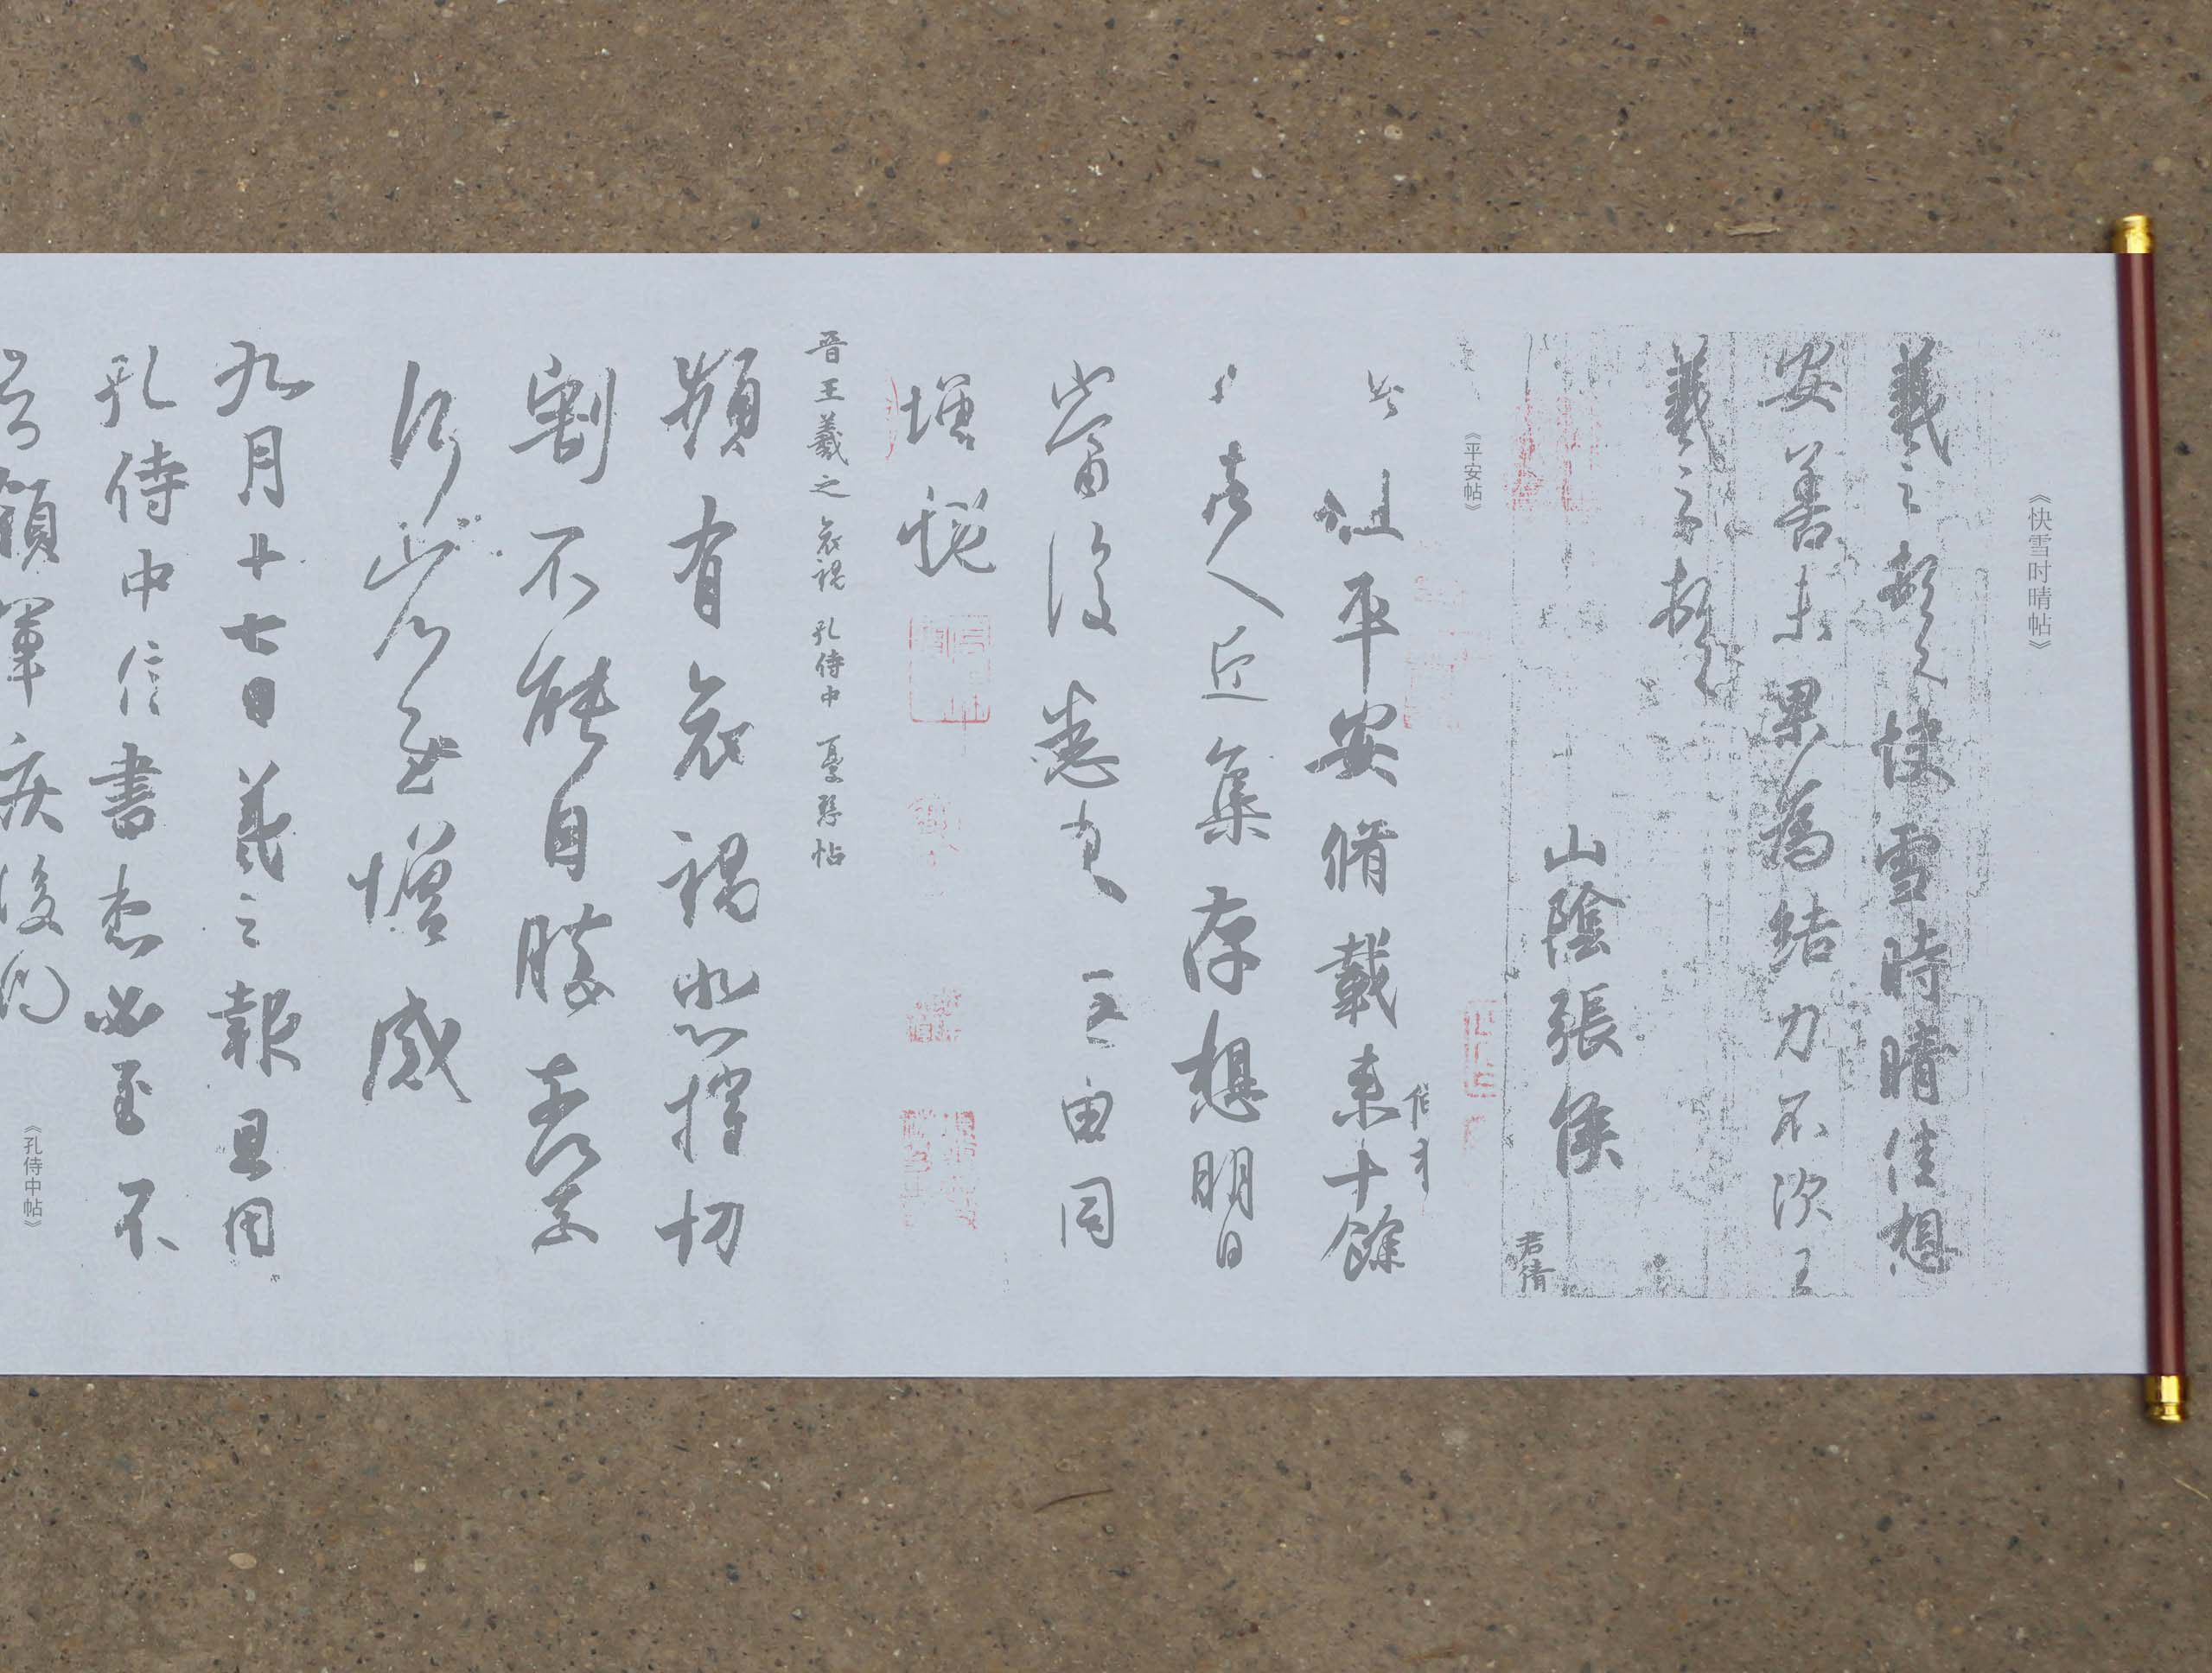 《快雪时晴帖》
羲之頓首快雪時晴佳想
安善未果為結力不次王
羲之頓首
山陰張侯
君倩
《平安帖》
此粗平安脩載来十餘
諸人近集存想明日
當復悉来無由同
增慨
晋王羲之 哀禍 孔侍中 憂懸帖
頻有哀禍悲摧切
割不能自勝奈何
奈何省慰增感
九月十七日羲之報且因
孔侍中信書想必至不
知領軍疾後問
《孔侍中帖》